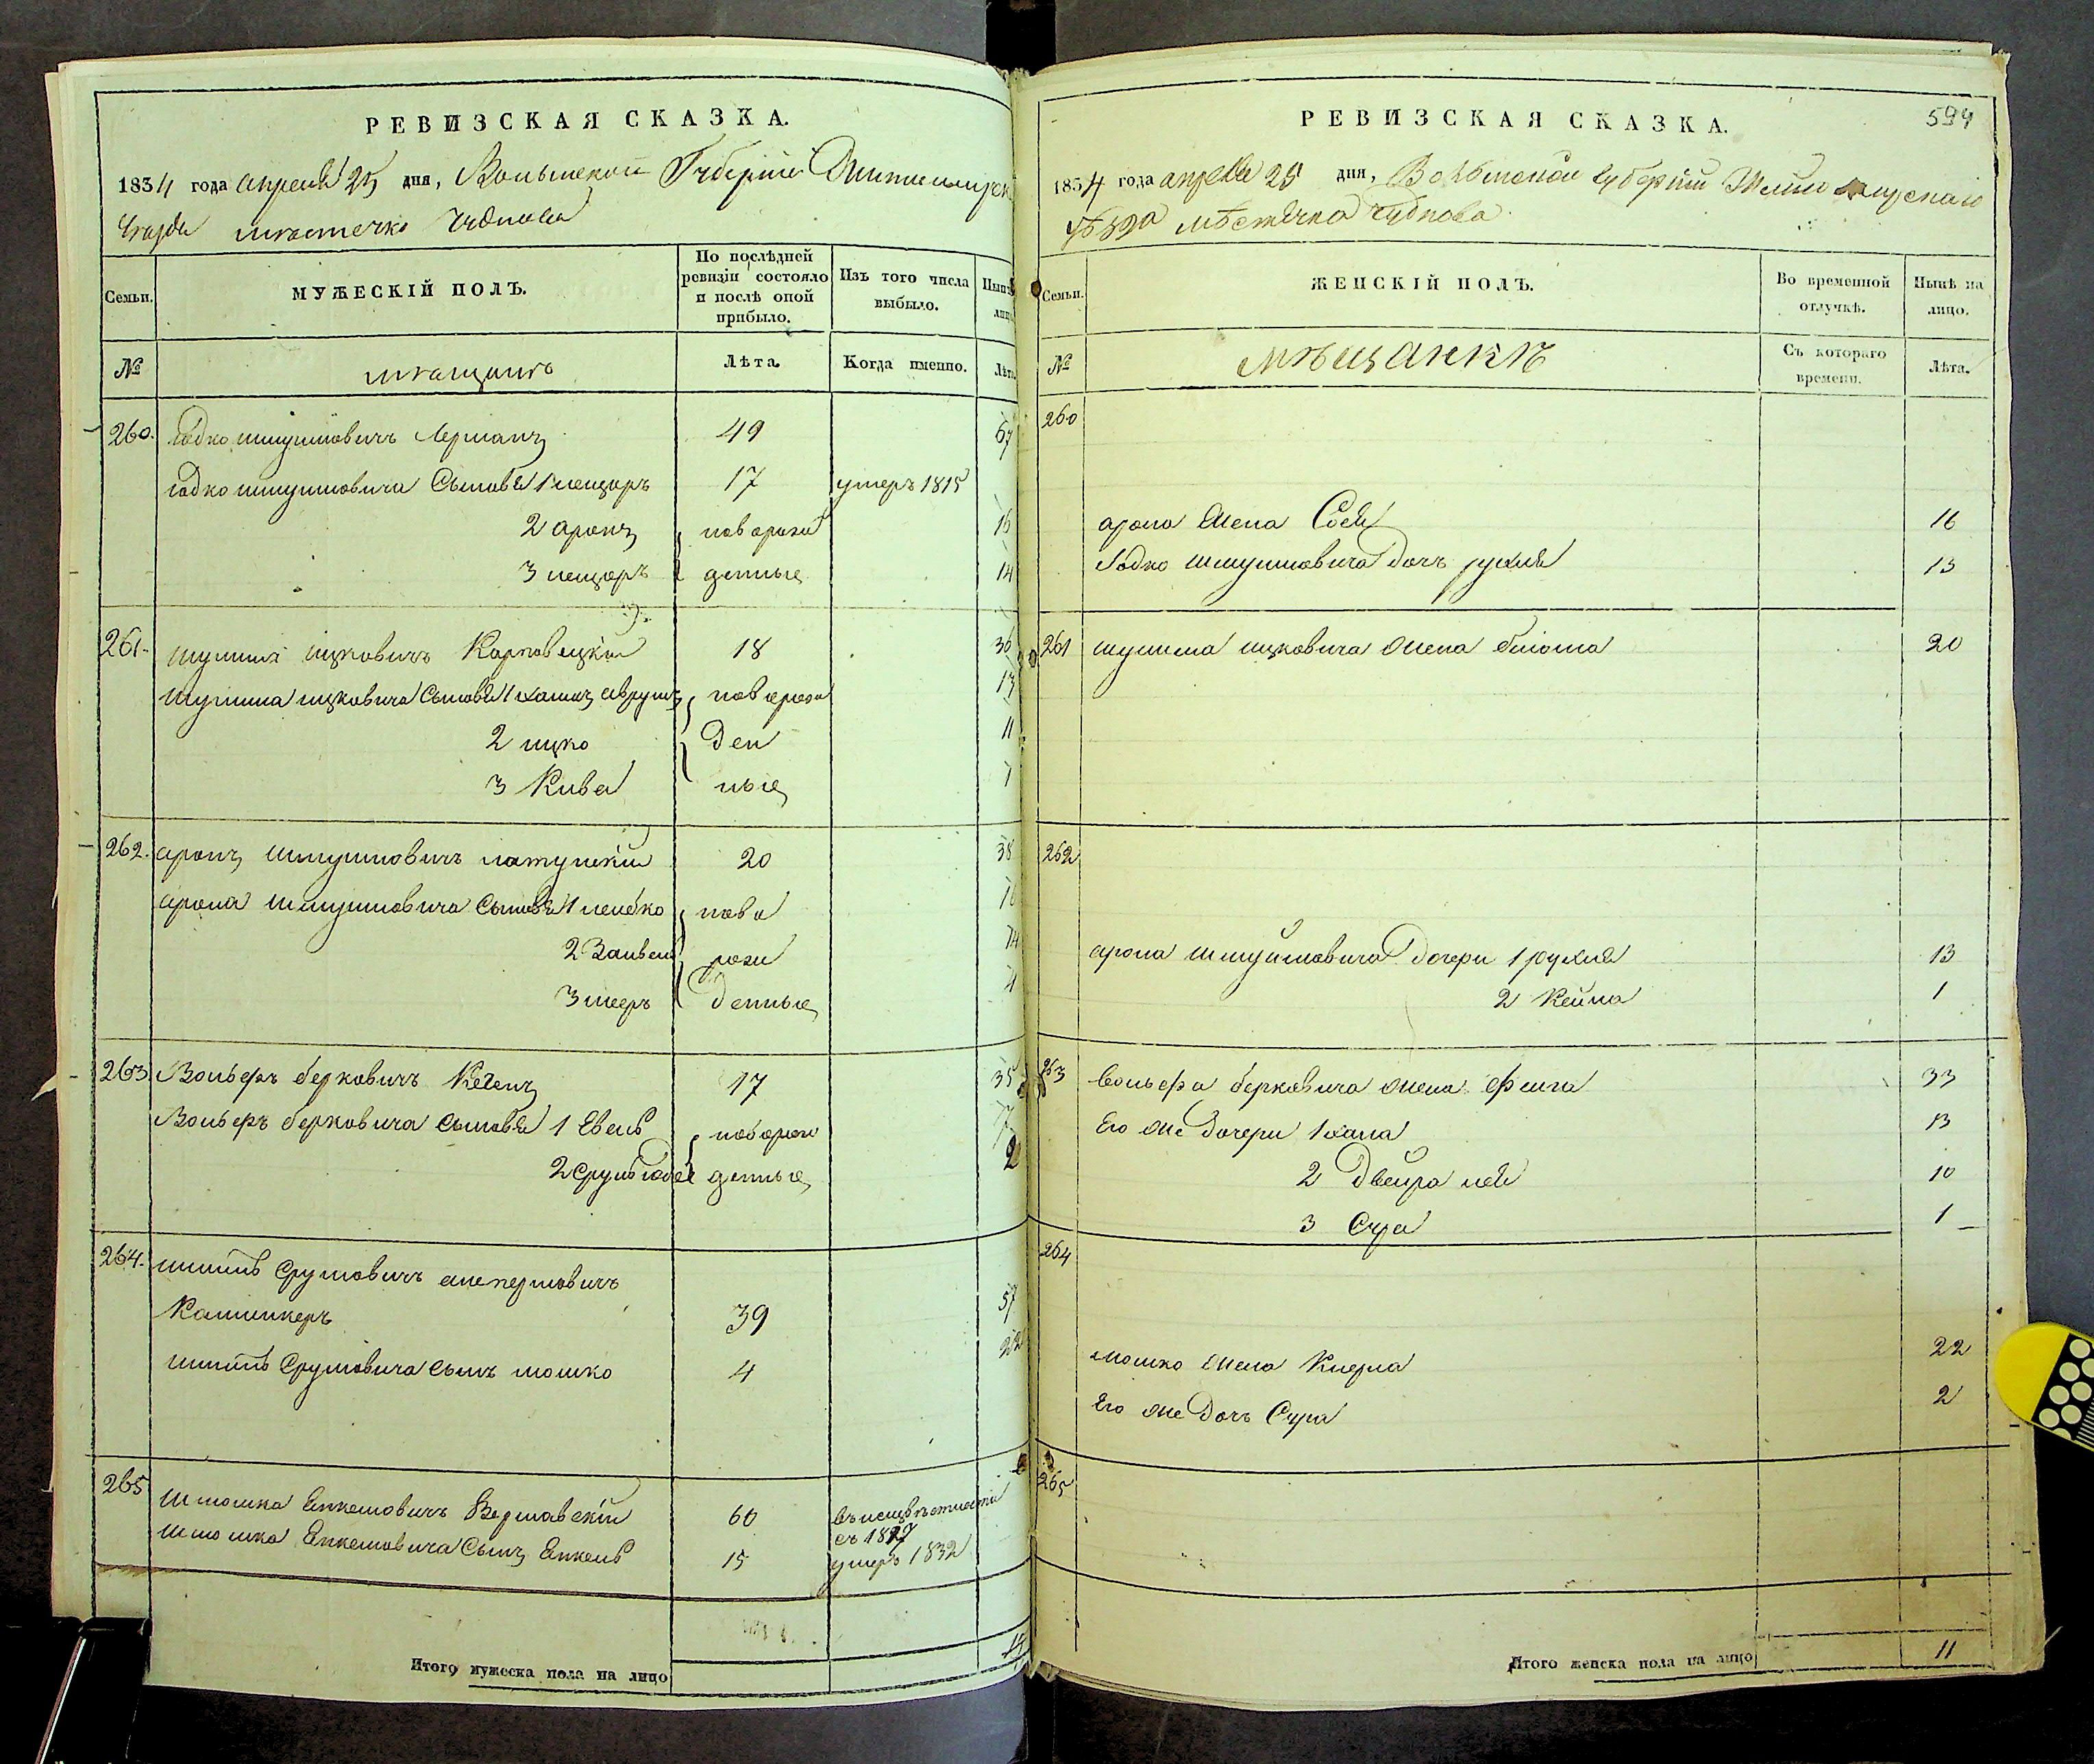 РЕВИЗСКАЯ СКАЗКА.
1834 года апреля 25 дня, Волынской Губернiи Житомирск
Уезда местечко Чуднова
Семьи.
МУЖЕСКIЙ ПОЛЪ.
По послѣдней ревизiи состояло и послѣ оной прибыло.
Изъ того числа выбыло.
Нынѣ лицо
№
мещанъ
Лѣта.
Когда именно.
Лѣта.
260. Іодко шмулиовичъ Лерманъ 49 67
Іодко шмулиовича Сыновя 1 лейзоръ 17 умеръ 1815
2 аронъ новорожд 16
3 лейзоръ денные 14
261. шулима ицковичъ Карповецкiй 18 36
шулима ицковича Сыновя 1 хаимъ аврумъ новорож 13
2 ицко ден 11
3 Кива ные 7
262. аронъ шмулиовичъ латунскiй 20 38
арона шмулиовича Сыновя 1 лейбко ново 16
2 Занвель рож 14
3 мееръ денные 4
263. Вольфъ берковичъ 17 35
Вольфъ берковича Сыновя 1 Евель новорож 7
2 Сруль денные 2
264. Сруловичъ
39 57
Сруловича сынъ мошко 4 22
265 Шмошка Енкелиовичъ Варшавскiй 60 въ неизвѣстности съ 1827
Шмошка Енкелиовича Сынъ Енкель 15 умеръ 1832
Итого мужеска пола на лицо 15
РЕВИЗСКАЯ СКАЗКА.
594
1834 года апреля 25 дня, Волынской губернiи Житомирскаго
уѣзда мѣстечка Чуднова
Семьи.
ЖЕНСКIЙ ПОЛЪ.
Во временной отлучкѣ.
Нынѣ на лицо.
№
мѣщанкѣ
Съ котораго времени.
Лѣта.
260
арона жена Сося 16
Іодко шмулиовича дочъ рухля 13
261 шулима ицковича жена блюма 20
262
арона шмулиовича дочери 1 рухля 13
2 Кейла 1
263 вольфа берковича жена фейга 33
Его же дочери 1 хана 13
2 Двейра лея 10
3 Сура 1
264
мошко жена 22
Его же дочъ Сура 2
265
Итого женска пола на лицо 11